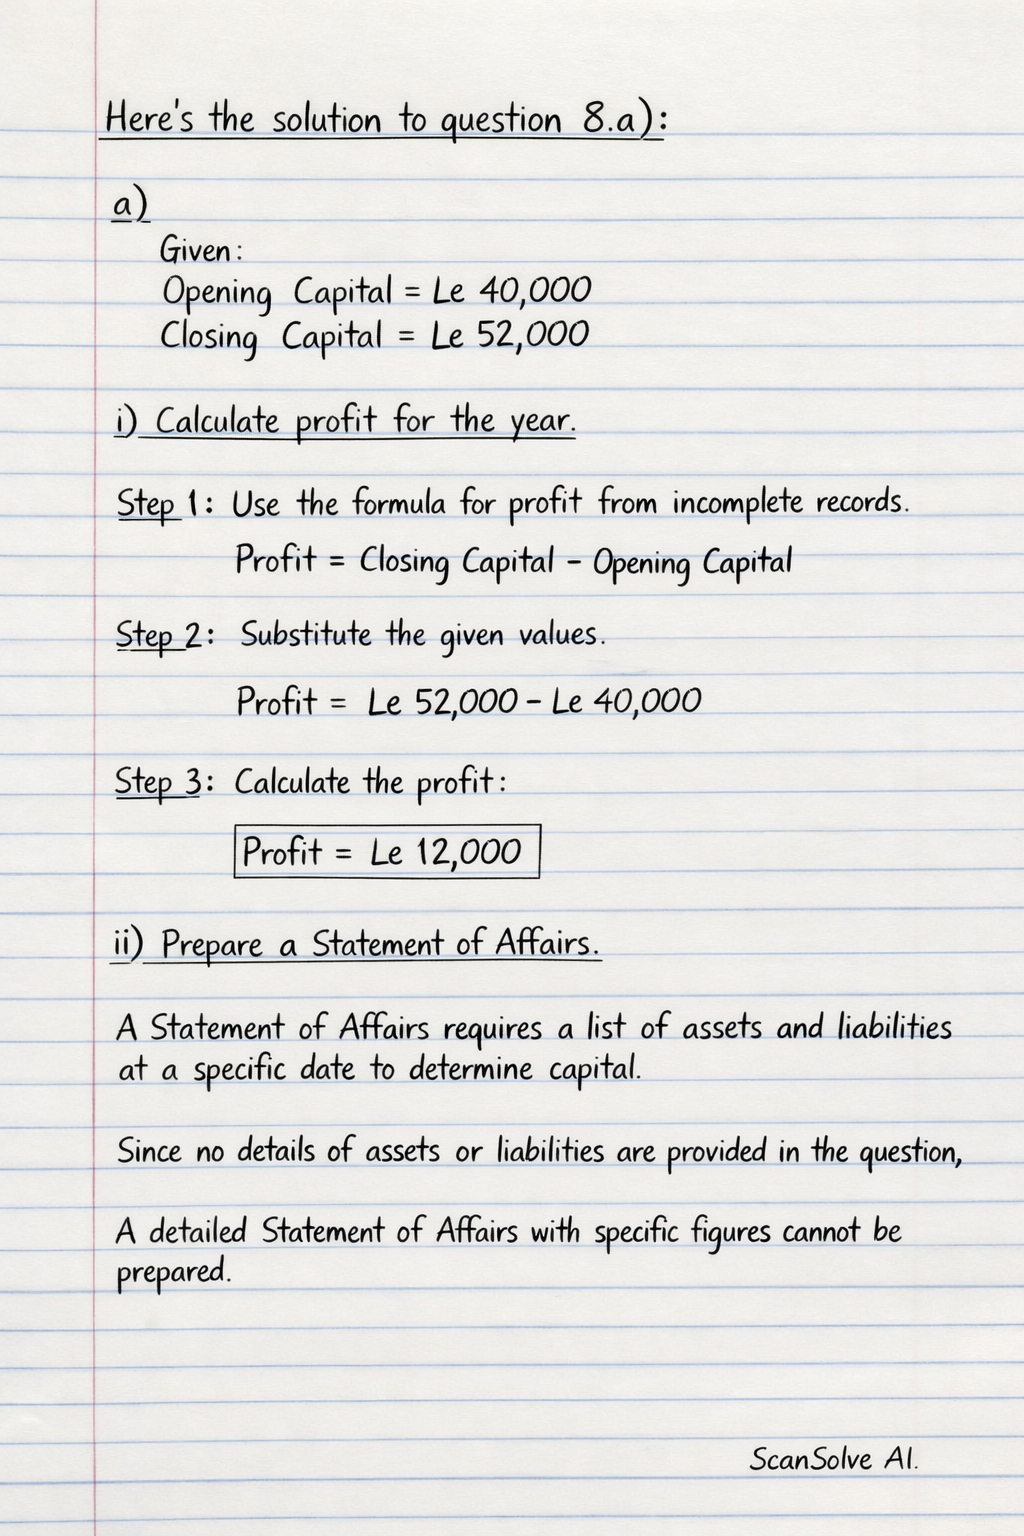 Here's the solution to question 8.a):
a)
Given:
Opening Capital = Le 40,000
Closing Capital = Le 52,000
i) Calculate profit for the year.
Step 1: Use the formula for profit from incomplete records.
Profit = Closing Capital - Opening Capital
Step 2: Substitute the given values.
Profit = Le 52,000 - Le 40,000
Step 3: Calculate the profit:
Profit = Le 12,000
ii) Prepare a Statement of Affairs.
A Statement of Affairs requires a list of assets and liabilities
at a specific date to determine capital.
Since no details of assets or liabilities are provided in the question,
A detailed Statement of Affairs with specific figures cannot be
prepared.
ScanSolve AI.